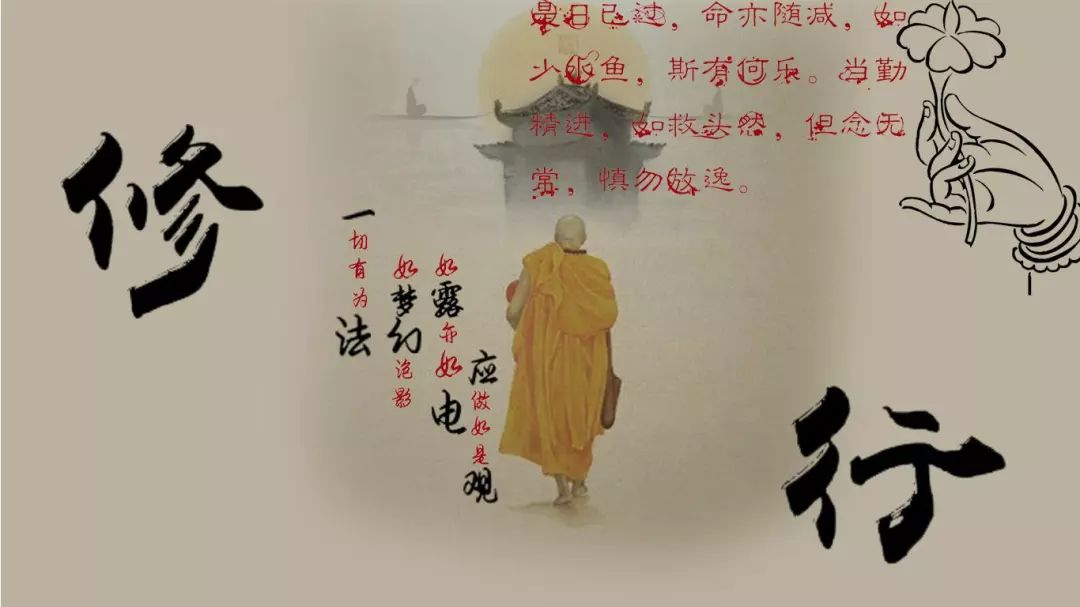 修
行
是日已过，命亦随减，如
少水鱼，斯有何乐。当勤
精进，如救头然，但念无
常，慎勿放逸。
一切有为法
如梦幻泡影
如露亦如电
应做如是观